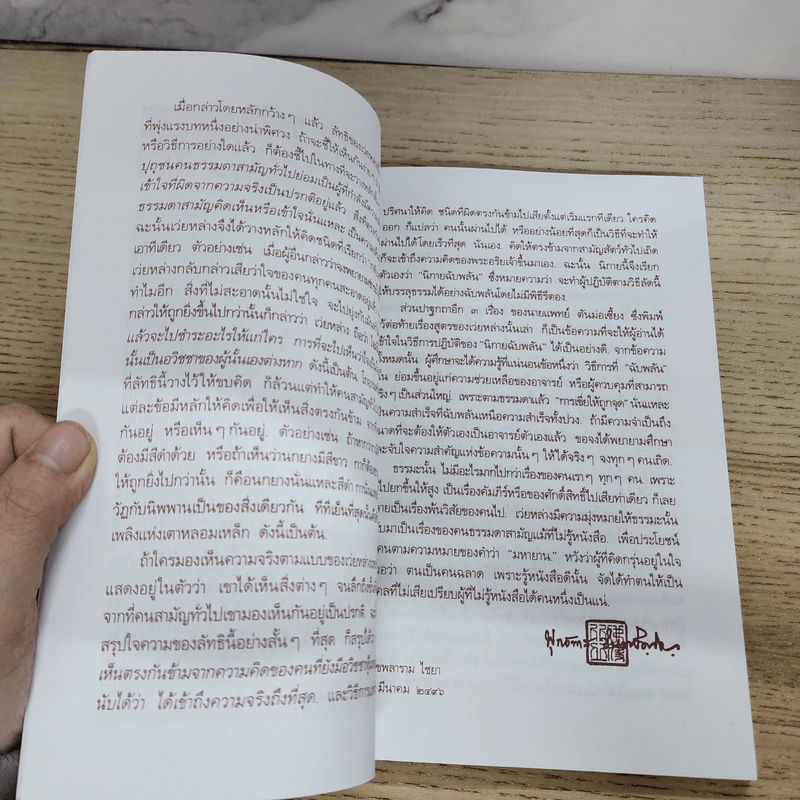 เมื่อกล่าวโดยหลักกว้างๆ แล้ว ลัทธิของเว่ยหล่าง
ที่พุ่งแรงบทหนึ่งอย่างน่าพิศวง ถ้าจะชี้ให้เห็นกันง่าย
หรือวิธีการอย่างใดแล้ว ก็ต้องชี้ไปในทางที่จะวางหลัก
ปุถุชนคนธรรมดาสามัญทั่วไปย่อมเป็นผู้ที่กำลังมี
เข้าใจที่ผิดจากความจริงเป็นปรกติอยู่แล้ว สิ่งที่
ธรรมดาสามัญคิดเห็นหรือเข้าใจนั่นแหละ เป็นความ
ฉะนั้นเว่ยหล่างจึงได้วางหลักให้คิดชนิดที่เรียกว่า
เอาทีเดียว ตัวอย่างเช่น เมื่อผู้อื่นกล่าวว่าจงพยายาม
เว่ยหล่างกลับกล่าวเสียว่าใจของคนทุกคนสะอาดอยู่แล้ว
ทำไมอีก สิ่งที่ไม่สะอาดนั้นไม่ใช่ใจ จะไปยุ่งกับมัน
กล่าวให้ถูกยิ่งขึ้นไปกว่านั้นก็กล่าวว่า เว่ยหล่าง ถือว่า
แล้วจะไปชำระอะไรให้แก่ใคร การที่จะไปเห็นว่า
นั้นเป็นอวิชชาของผู้นั้นเองต่างหาก ดังนี้เป็นต้น
ที่ลัทธินี้วางไว้ให้ขบคิด ก็ล้วนแต่ทำให้คนสามัญ
แต่ละข้อมีหลักให้คิดเพื่อให้เห็นสิ่งตรงกันข้าม จาก
กันอยู่ หรือเห็นๆ กันอยู่. ตัวอย่างเช่น ถ้าหากว่า
ต้องมีสีดำด้วย หรือถ้าเห็นว่านกยางมีสีขาว กาก็ต้อง
ให้ถูกยิ่งไปกว่านั้น ก็คือนกยางนั่นแหละสีดำ กานั่นแหละ
วัฏกับนิพพานเป็นของสิ่งเดียวกัน ที่ที่เย็นที่สุดนั้น
เพลิงแห่งเตาหลอมเหล็ก ดังนี้เป็นต้น.
ถ้าใครมองเห็นความจริงตามแบบของเว่ยหล่าง
แสดงอยู่ในตัวว่า เขาได้เห็นสิ่งต่างๆ จนลึกถึง
จากที่คนสามัญทั่วไปเขามองเห็นกันอยู่เป็นปรกติ
สรุปใจความของลัทธินี้อย่างสั้นๆ ที่สุด ก็สรุปได้ว่า
เห็นตรงกันข้ามจากความคิดของคนที่ยังมีอวิชชา
นับได้ว่า ได้เข้าถึงความจริงถึงที่สุด. และวิธีการ
ปริศนาให้คิด ชนิดที่ผิดตรงกันข้ามไปเสียตั้งแต่เริ่มแรกทีเดียว ใครคิด
ออก ก็แปลว่า คนนั้นผ่านไปได้ หรืออย่างน้อยที่สุดก็เป็นวิธีที่จะทำให้
ผ่านไปได้โดยเร็วที่สุด นั่นเอง. คิดให้ตรงข้ามจากสามัญสัตว์ทั่วไปเถิด
ก็จะเข้าถึงความคิดของพระอริยเจ้าขึ้นมาเอง. ฉะนั้น นิกายนี้จึงเรียก
ตัวเองว่า "นิกายฉับพลัน" ซึ่งหมายความว่า จะทำผู้ปฏิบัติตามวิธีลัดนี้
ให้บรรลุธรรมได้อย่างฉับพลันโดยไม่มีพิธีรีตอง.
ส่วนปาฐกถาอีก ๓ เรื่อง ของนายแพทย์ ตันม่อเซี้ยง ซึ่งพิมพ์
ไว้ต่อท้ายเรื่องสูตรของเว่ยหล่างนั้นเล่า ก็เป็นข้อความที่จะให้ผู้อ่านได้
เข้าใจในวิธีการปฏิบัติของ "นิกายฉับพลัน" ได้เป็นอย่างดี. จากข้อความ
ทั้งหมดนั้น ผู้ศึกษาจะได้ความรู้ที่แน่นอนข้อหนึ่งว่า วิธีการที่ "ฉับพลัน"
นั้น ย่อมขึ้นอยู่แก่ความช่วยเหลือของอาจารย์ หรือผู้ควบคุมที่สามารถ
จริงๆ เป็นส่วนใหญ่. เพราะตามธรรมดาแล้ว "การเขี่ยให้ถูกจุด" นั่นแหละ
เป็นความสำเร็จที่ฉับพลันเหนือความสำเร็จทั้งปวง. ถ้ามีความจำเป็นถึง
ขนาดที่จะต้องให้ตัวเองเป็นอาจารย์ตัวเองแล้ว ขอจงได้พยายามศึกษา
และจับใจความสำคัญแห่งข้อความนั้นๆ ให้ได้จริงๆ จงทุกๆ คนเถิด.
ธรรมะนั้น ไม่มีอะไรมากไปกว่าเรื่องของคนเราๆ ทุกๆ คน เพราะ
ไปยกขึ้นให้สูง เป็นเรื่องคัมภีร์หรือของศักดิ์สิทธิ์ไปเสียท่าเดียว ก็เลย
เป็นเรื่องพ้นวิสัยของคนไป. เว่ยหล่างมีความมุ่งหมายให้ธรรมะนั้น
มาเป็นเรื่องของคนธรรมดาสามัญแม้ที่ไม่รู้หนังสือ. เพื่อประโยชน์
คนตามความหมายของคำว่า "มหายาน." หวังว่าผู้ที่คิดกรุ่นอยู่ในใจ
เสมอว่า ตนเป็นคนฉลาด เพราะรู้หนังสือดีนั้น จัดได้ทำตนให้เป็น
คลที่ไม่เสียเปรียบผู้ที่ไม่รู้หนังสือได้คนหนึ่งเป็นแน่.
ชพลาราม ไชยา
มีนาคม ๒๔๙๖